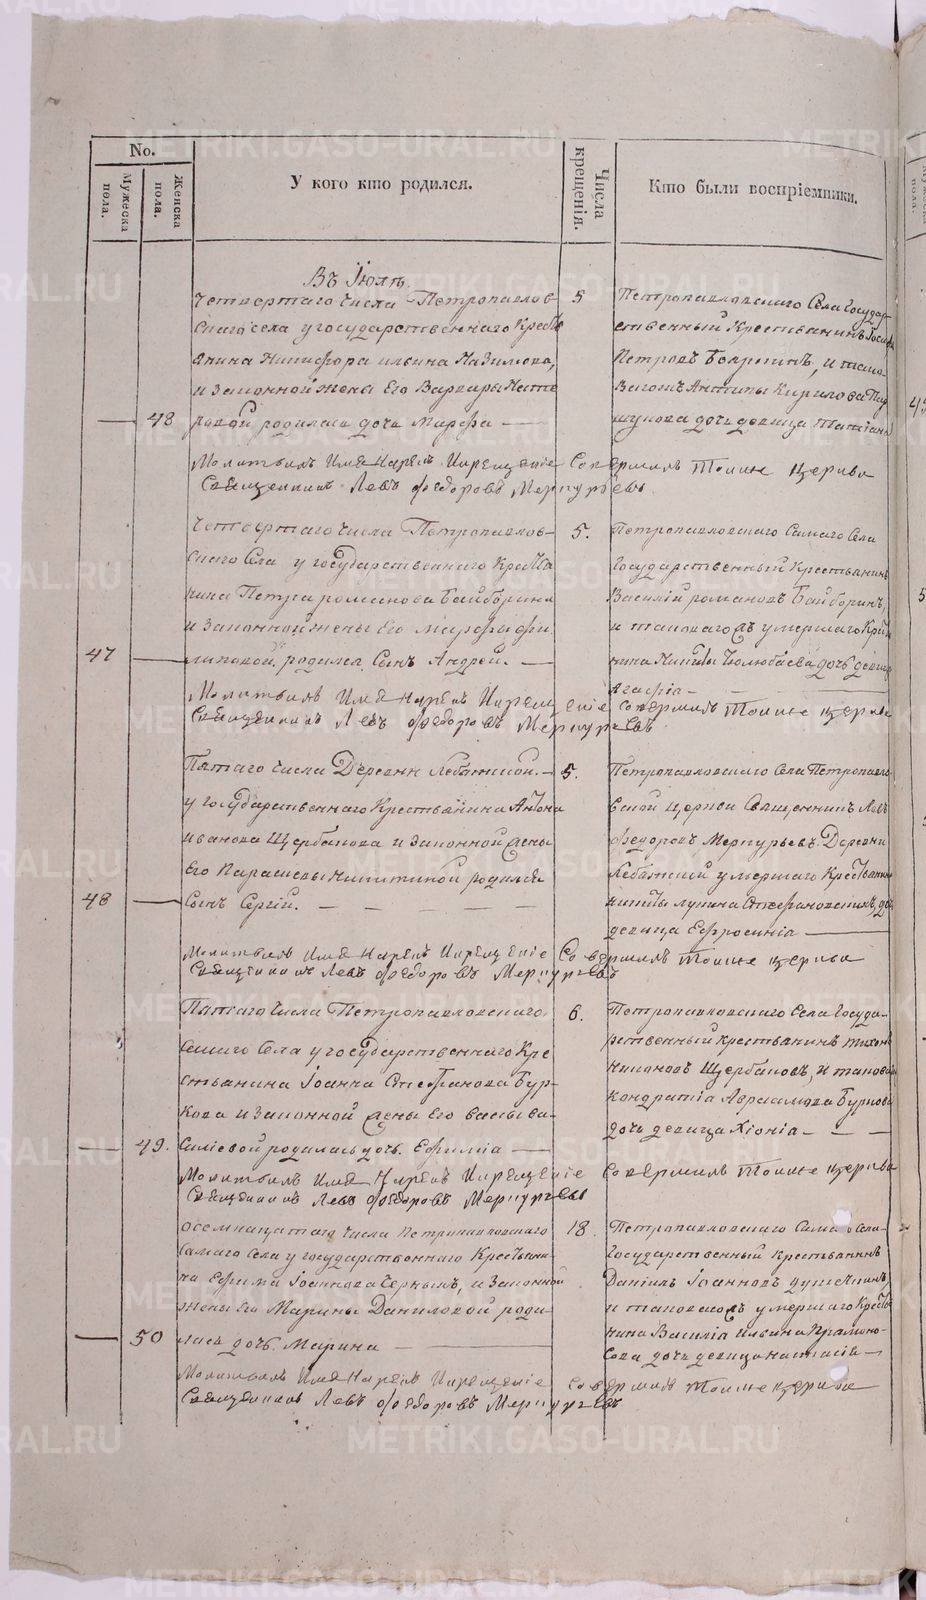 No.
Мужеска пола.
Женска пола.
У кого кто родился.
Числа крещенія.
Кто были воспріемники.
Въ Іюлѣ.
Четвертаго числа Петропавлов-
скаго села у государственнаго Кресть
янина Никифора Ильина Назимова,
и законной жены Его Варвары
48 родилась дочь Марфа
5
Петропавловскаго Села Государ-
ственный Крестьянинъ
Петровъ и тако-
ваго Кирилова
дочь девица Татіана
Молитвилъ Имя Нарекъ И крещеніе Совершилъ Тойже церкви
Священникъ Левъ Федоровъ Меркурьевъ.
Четвертаго числа Петропавлов-
скаго Села у государственнаго Крестья
нина Петра романова Байборина
и Законной жены Его Марфы фи
47
липовой, родился Сынъ Андрей.
5.
Петропавловскаго Самаго Села
Государственный Крестьянинъ
Василій романовъ Байборинъ,
и таковаго съ умершаго Крестья
нина Никиты дочь девица
Агафія
Молитвилъ Имя Нарекъ И крещеніе Совершилъ Тойже церкви
Священникъ Левъ Федоровъ Меркурьевъ
Пятаго числа Деревни Лебяжской.
у государственнаго Крестьянина Антона
иванова Щербакова и Законной жены
Его Парасковьи Никитиной родился
48
Сынъ Сергій.
5.
Петропавловскаго Села Петропавло-
вской церкви Священникъ Левъ
Федоровъ Меркурьевъ. Деревни
Лебяжской умершаго Крестьянина
Никиты лукина до
девица Ефросинія
Молитвилъ Имя Нарекъ И крещеніе Совершилъ Тойже церкви
Священникъ Левъ Федоровъ Меркурьевъ
Пятаго числа Петропавловскаго
самаго Села у государственнаго Кре
стьянина Іоанна Стефанова Бур-
кова и Законной жены Его васы ва-
49.
силіевой родилась дочь. Ефимія
6.
Петропавловскаго Села Госуда-
рственный крестьянинъ тихонъ
Никоновъ Щербаковъ, и таковаго
кондратія Авраамова Буркова
дочь девица Хіонія
Молитвилъ Имя Нарекъ И крещеніе Совершилъ Тойже церкви
Священникъ Левъ Федоровъ Меркурьевъ
осемнацатаго числа Петропавловскаго
Самаго Села у государственнаго Крестьяни-
на Ефима Іоаннова Черныхъ, и Законной
жены Его Марины Даниловой роди-
50
лась дочь. Марина
18.
Петропавловскаго Самаго Села
Государственный Крестьянинъ
Даніилъ Іоанновъ
и таковаго съ умершаго Крестья
нина Василія Ильина
сова дочь девица настасія
Молитвилъ Имя Нарекъ И крещеніе Совершилъ Тойже церкви
Священникъ Левъ Федоровъ Меркурьевъ
METRIKI.GASO-URAL.RU